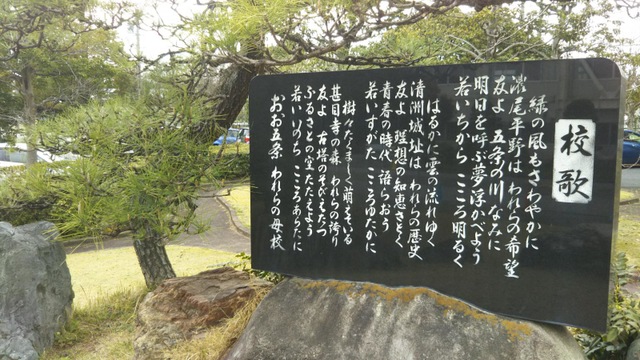 校歌
緑の風もさわやかに
濃尾平野は われらの希望
友よ 五条の川なみに
明日を呼ぶ夢浮かべよう
若いちから こころ明るく
はるかに雲の流れゆく
清洲城址は われらの歴史
友よ 理想の知恵さとく
青春の時代 語らおう
若いすがた こころゆたかに
樹々たくましく萌えている
甚目寺の森 われらの誇り
友よ 古塔のそびえたつ
ふるさとの空たたえよう
若いいのち こころあらたに
おお五条 われらの母校